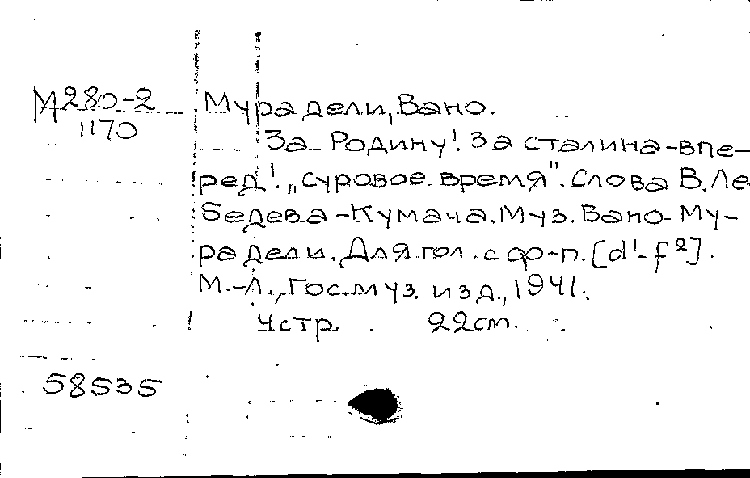 М280-2 Мурадели, Вано.
1170
За Родину! За Сталина-впе-
ред! „Суровое время". Слова В. Ле
бедева-Кумача. Муз. Вано Му-
радели. Для гол. с ф-п. [d¹-f²].
М.-Л., Гос. муз. изд., 1941.
4 стр. 22 см.
58535